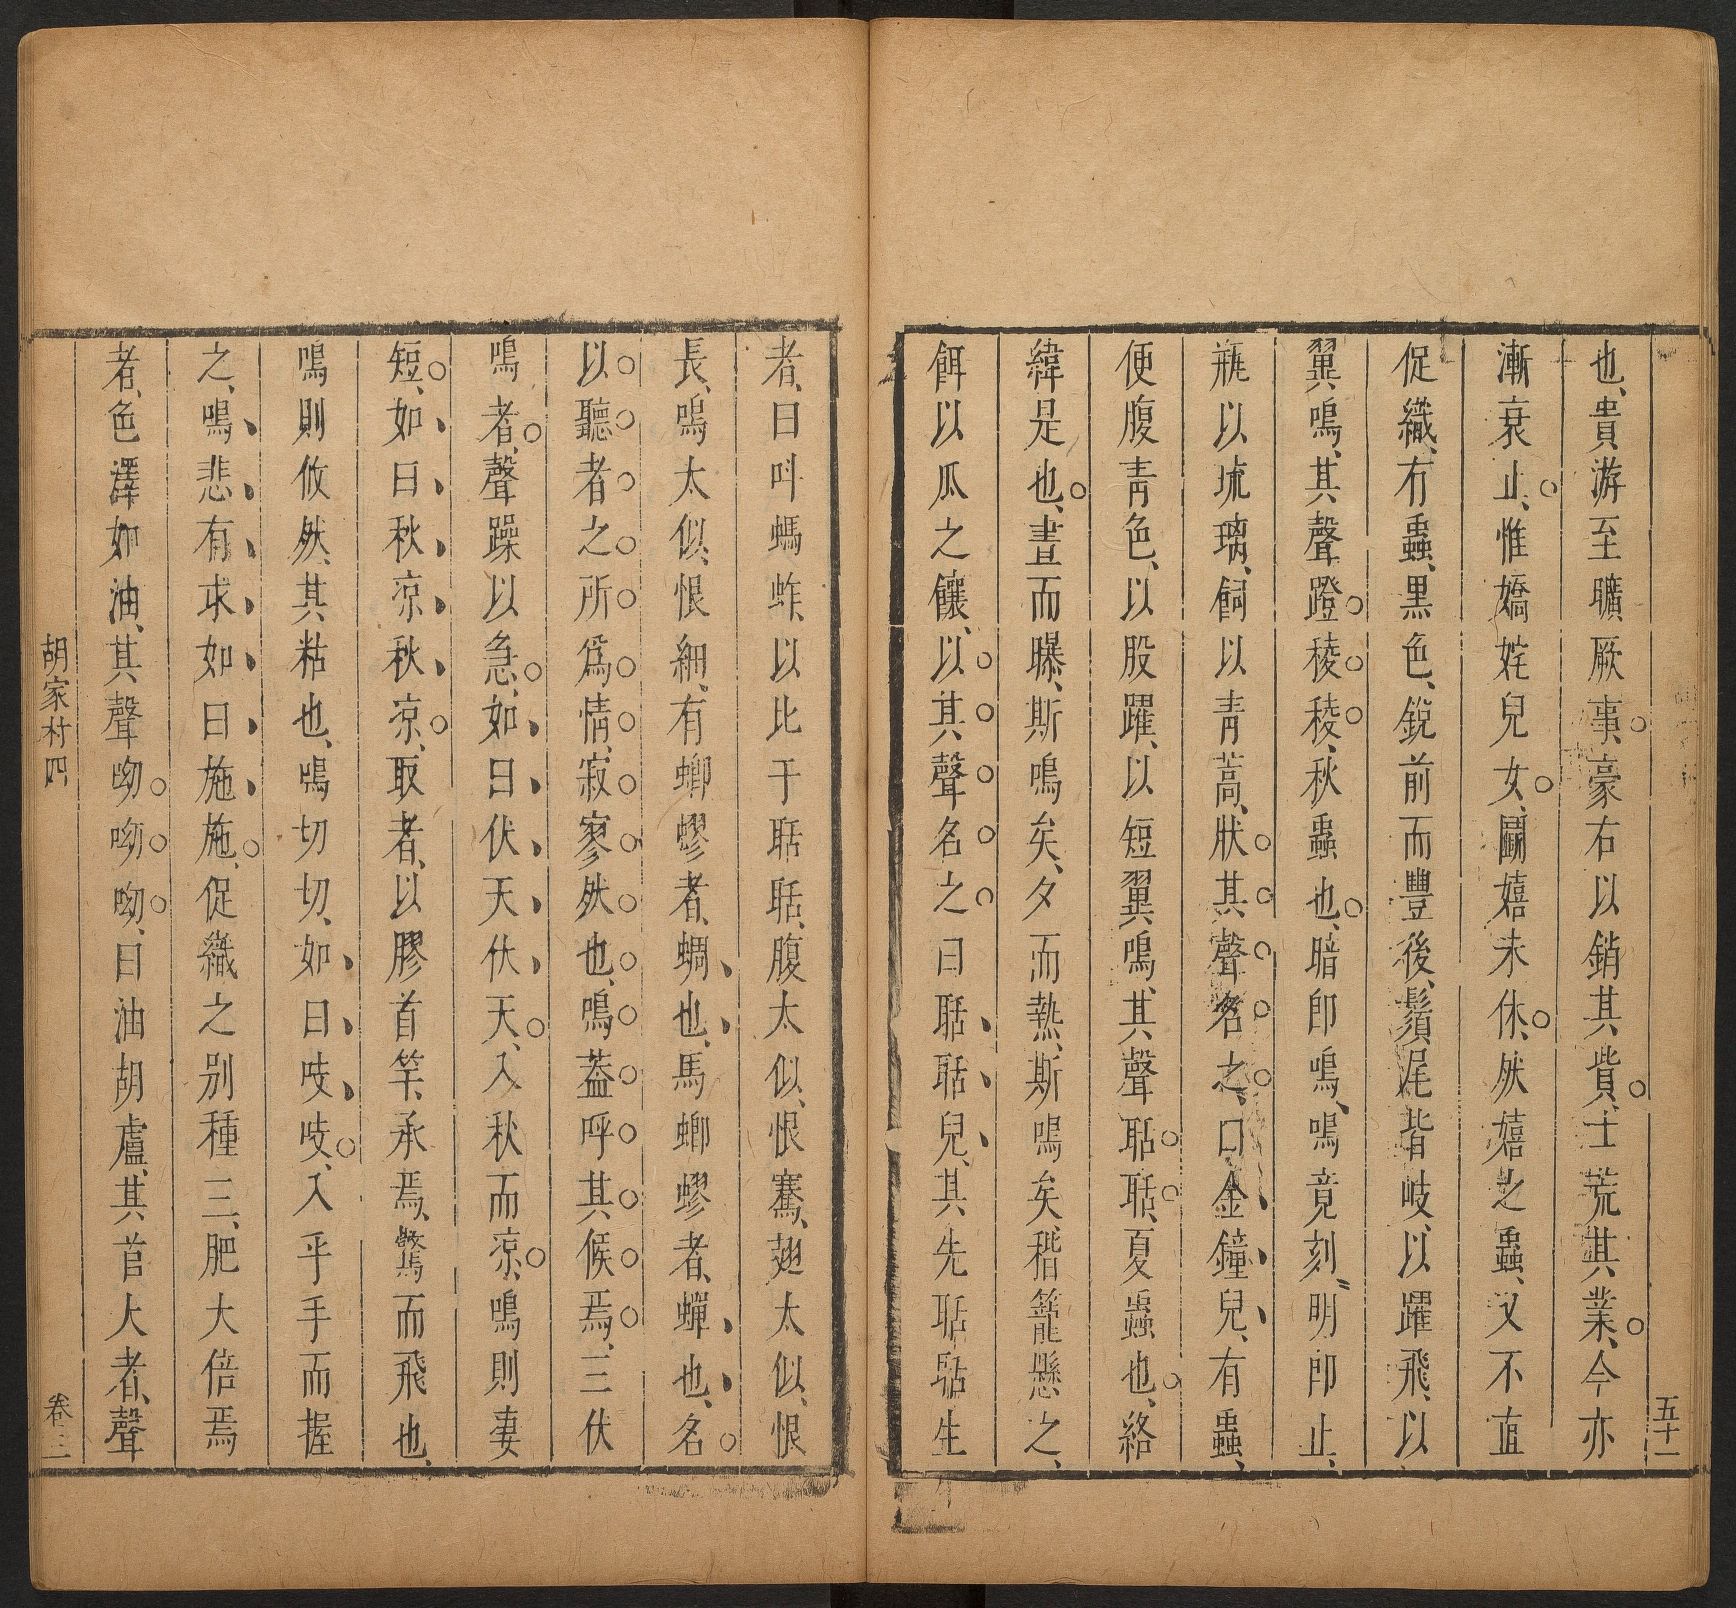 五十一
也、貴游至曠厥事、豪右以銷其貲、士荒其業、今亦
漸衰止、惟嬌姹兒女、鬭嬉未休、然嬉之蟲、又不直
促織、有蟲、黑色、銳前而豐後、鬚尾皆岐、以躍飛、以
翼鳴、其聲蹬稜稜、秋蟲也、暗即鳴、鳴竟刻、明即止、
瓶以琉璃、飼以青蒿、狀其聲名之、曰金鐘兒、有蟲、
便腹青色、以股躍、以短翼鳴、其聲聒聒、夏蟲也、絡
緯是也、晝而曝、斯鳴矣、夕而熱、斯鳴矣、稭籠懸之、
餌以瓜之饟、以其聲名之曰聒聒兒、其先聒聒生
者、曰叫螞蚱、以比于聒聒、腹太似、恨騫、翅太似、恨
長、鳴太似、恨細、有蝍蟟者、蜩也、馬蝍蟟者、蟬也、名
以聽者之所為情、寂寥然也、鳴葢呼其候焉、三伏
鳴者、聲躁以急、如曰伏天伏天、入秋而涼、鳴則妻
短、如曰秋涼秋涼、取者、以膠首竿、承焉、驚而飛也、
鳴則攸然、其粘也、鳴切切、如曰吱吱、入乎手而握
之、鳴悲有求、如曰施施、促織之別種三、肥大倍焉
者、色澤如油、其聲呦呦呦、曰油胡盧、其首大者、聲
胡家村四
卷三